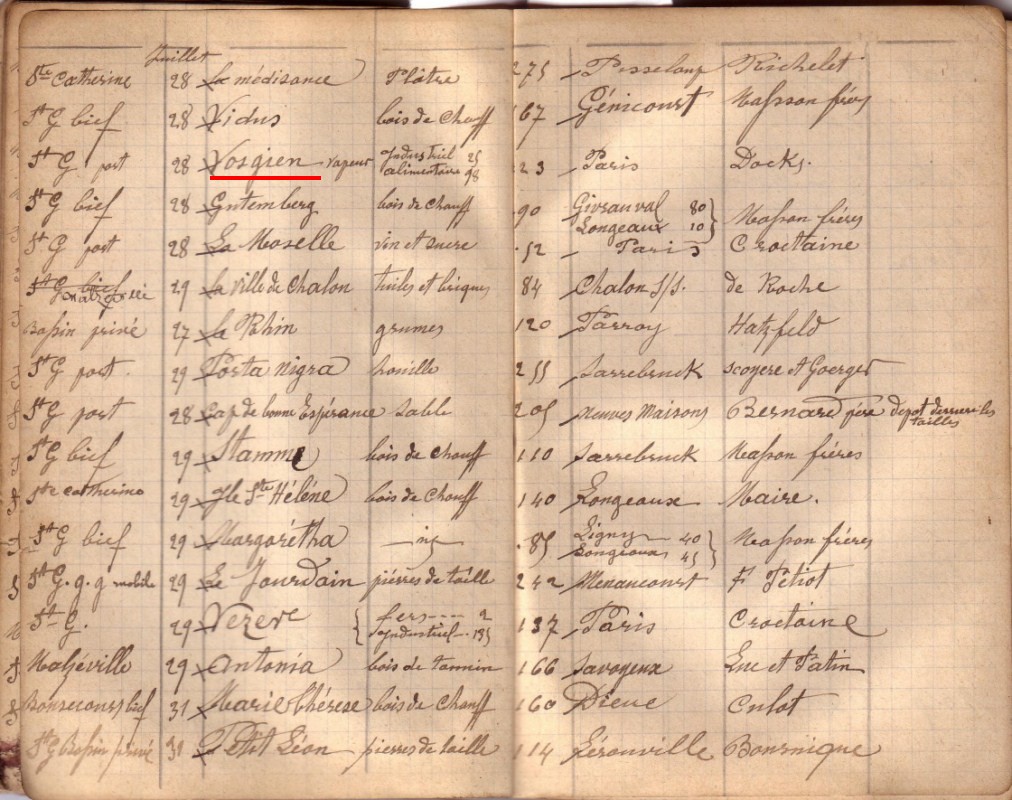 Juillet
Ste Catherine 28 La médisance Plâtre 275 Richelet
St G bief 28 Vidus bois de chauff 167 Génicourt Masson frères
St G port 28 Vosgien vapeur industriel 25 alimentaire 98 Paris Docks.
St G bief 28 Gutemberg bois de chauff 90 Givrauval 80 Longeaux 10 Masson frères
St G port 28 La Moselle vin et sucre 52 Paris Croctaine
St G bief 29 La ville de Chalon tuiles et briques 84 Chalon s/s. de Roche
Bassin privé 27 le Rhin grumes 120 Parroy Hatzfeld
St G port. 29 Porta nigra houille 255 Sarrebruck et Goerger
St G port 28 Cap de bonne Espérance sable 205 Neuves Maisons Bernard père depot derriere les tailles
St G bief 29 Stamm bois de chauff 110 Sarrebruck Masson frères
Ste Catherine 29 Ile Ste Hélène bois de chauff 140 Longeaux Maire.
St G bief 29 Margarétha 85 Ligny 40 Longeaux 45 Masson frères
St G. g. g mobile 29 Le Jourdain pierres de taille 242 Menancourt F Petiot
St G. 29 Vezere fers 2 Industriel 135 137 Paris Croctaine
Malzéville 29 Antonia bois de tannin 166 Savoyeux Luc et Patin
Bonsecours bief 31 Marie thérèse bois de chauff 160 Dieue Culot
St G Bassin privé 31 Petit Léon pierres de taille 114 Lérouville